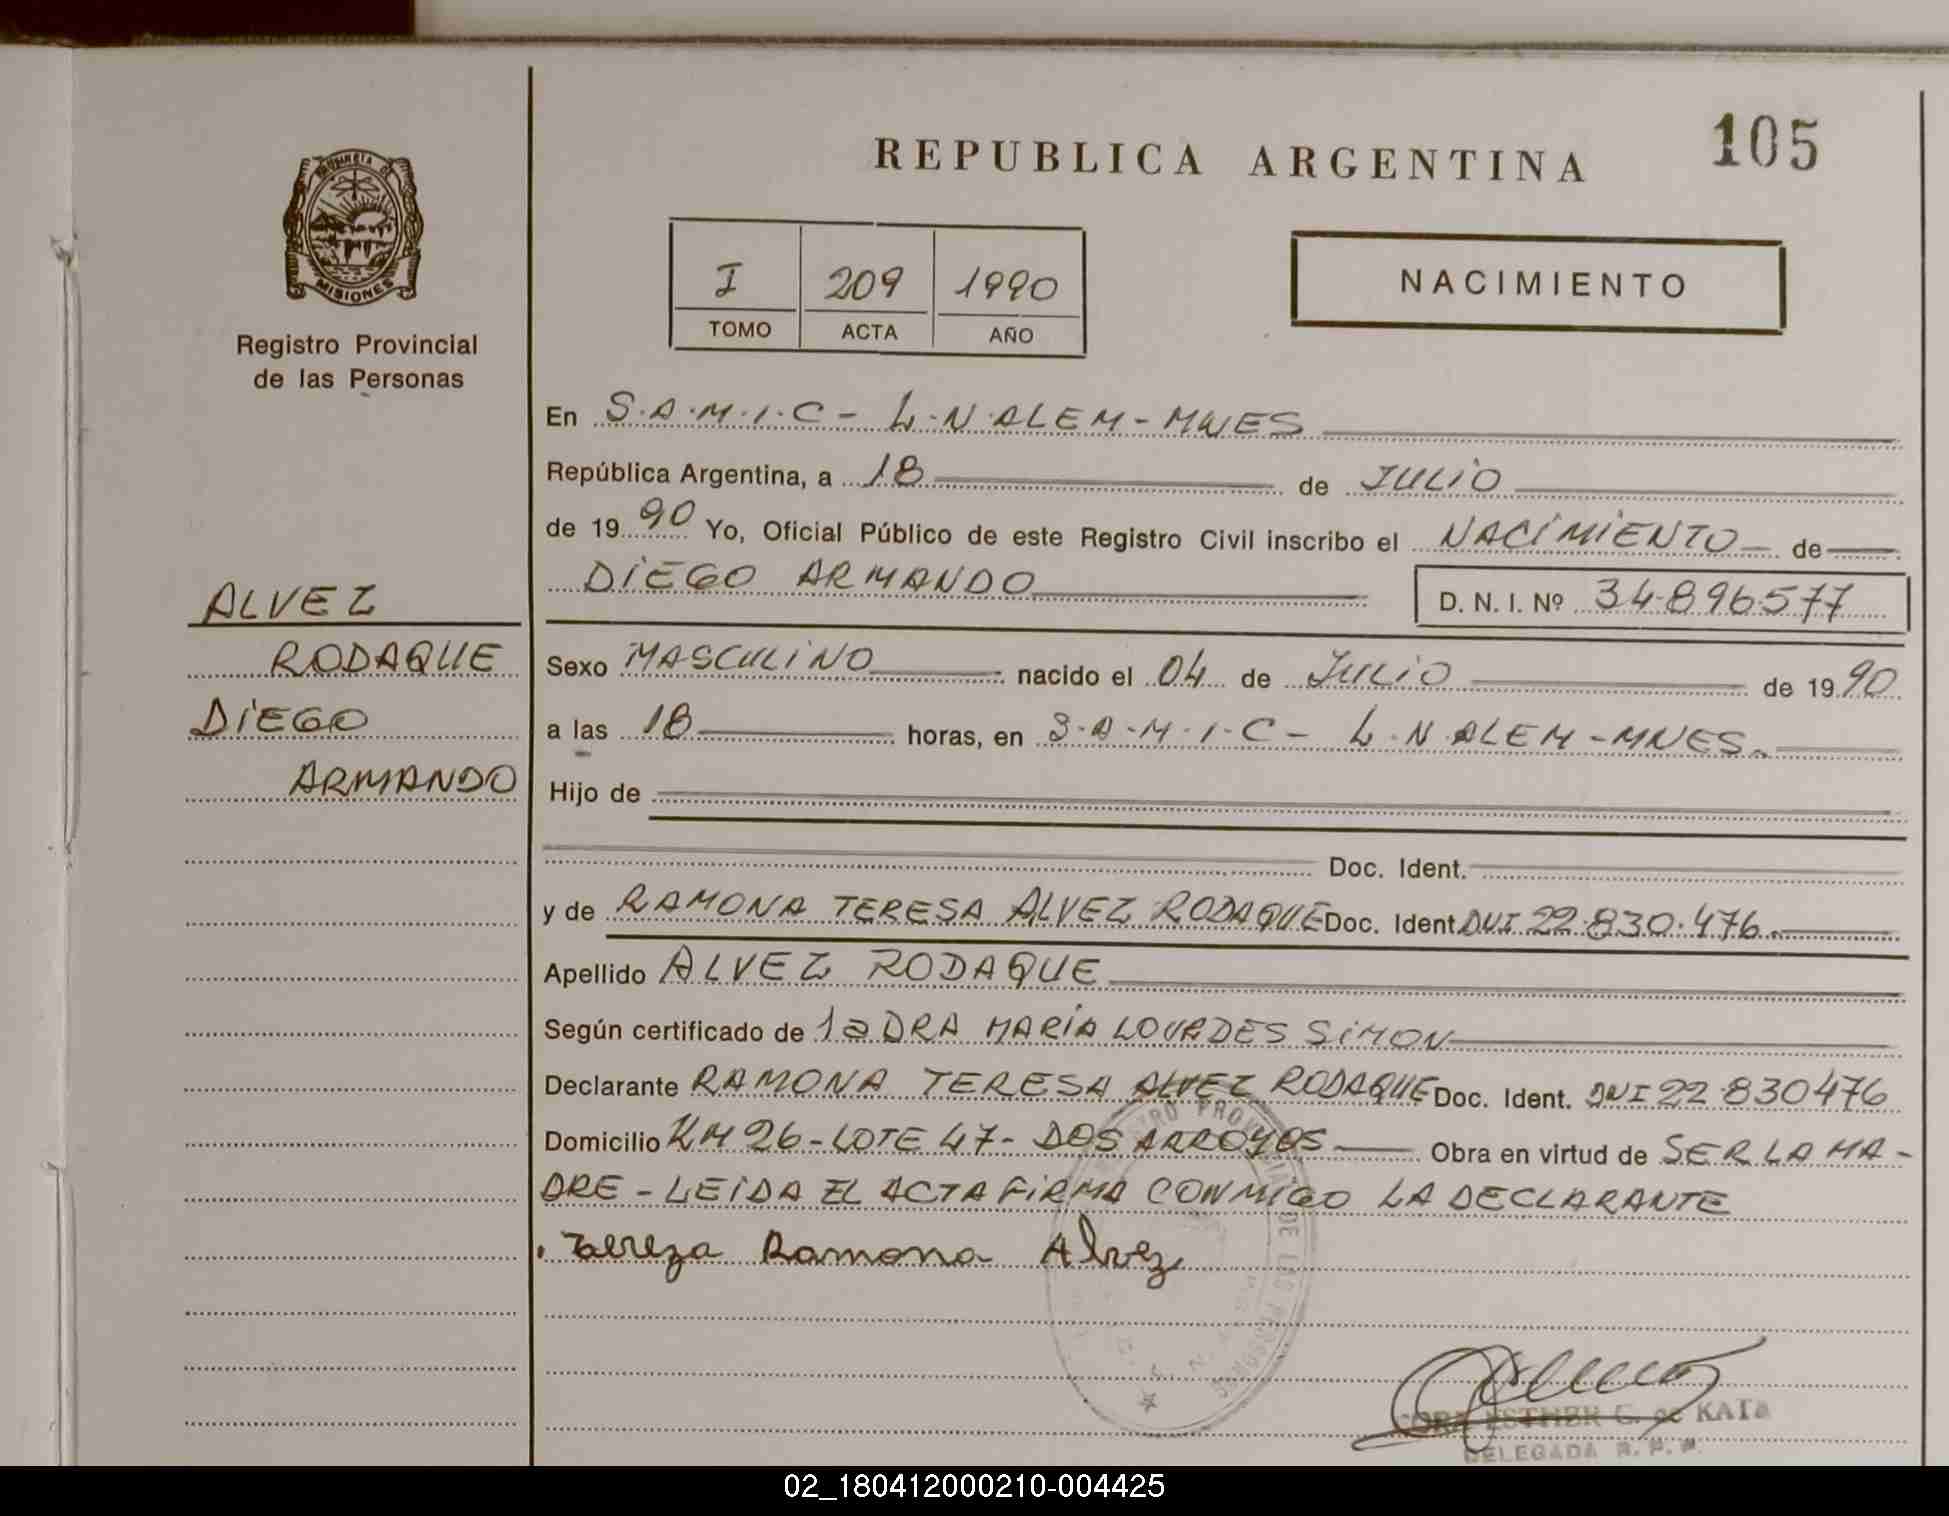 REPUBLICA ARGENTINA
105
MISIONES
Registro Provincial
de las Personas
I 209 1990
TOMO ACTA AÑO
NACIMIENTO
ALVEZ
RODAQUE
DIEGO
ARMANDO
En S.A.M.I.C - L.N.ALEM-MNES
República Argentina, a 18 de JULIO
de 1990 Yo, Oficial Público de este Registro Civil inscribo el NACIMIENTO de
DIEGO ARMANDO D. N. I. Nº 34.896577
Sexo MASCULINO nacido el 04 de JULIO de 1990
a las 18 horas, en S.A.M.I.C - L.N.ALEM-MNES.
Hijo de
Doc. Ident.
y de RAMONA TERESA ALVEZ RODAQUE Doc. Ident DNI 22.830.476
Apellido ALVEZ RODAQUE
Según certificado de la DRA MARÍA LOURDES SIMON
Declarante RAMONA TERESA ALVEZ RODAQUE Doc. Ident. DNI 22.830476
Domicilio KM 26-LOTE 47- DOS ARROYOS Obra en virtud de SER LA MA-
DRE - LEIDA EL ACTA FIRMA CONMIGO LA DECLARANTE
Tereza Ramona Alvez
REGISTRO PROVINCIAL DE LAS PERSONAS
ESTHER G. de KATA
DELEGADA R. P. P.
02_180412000210-004425